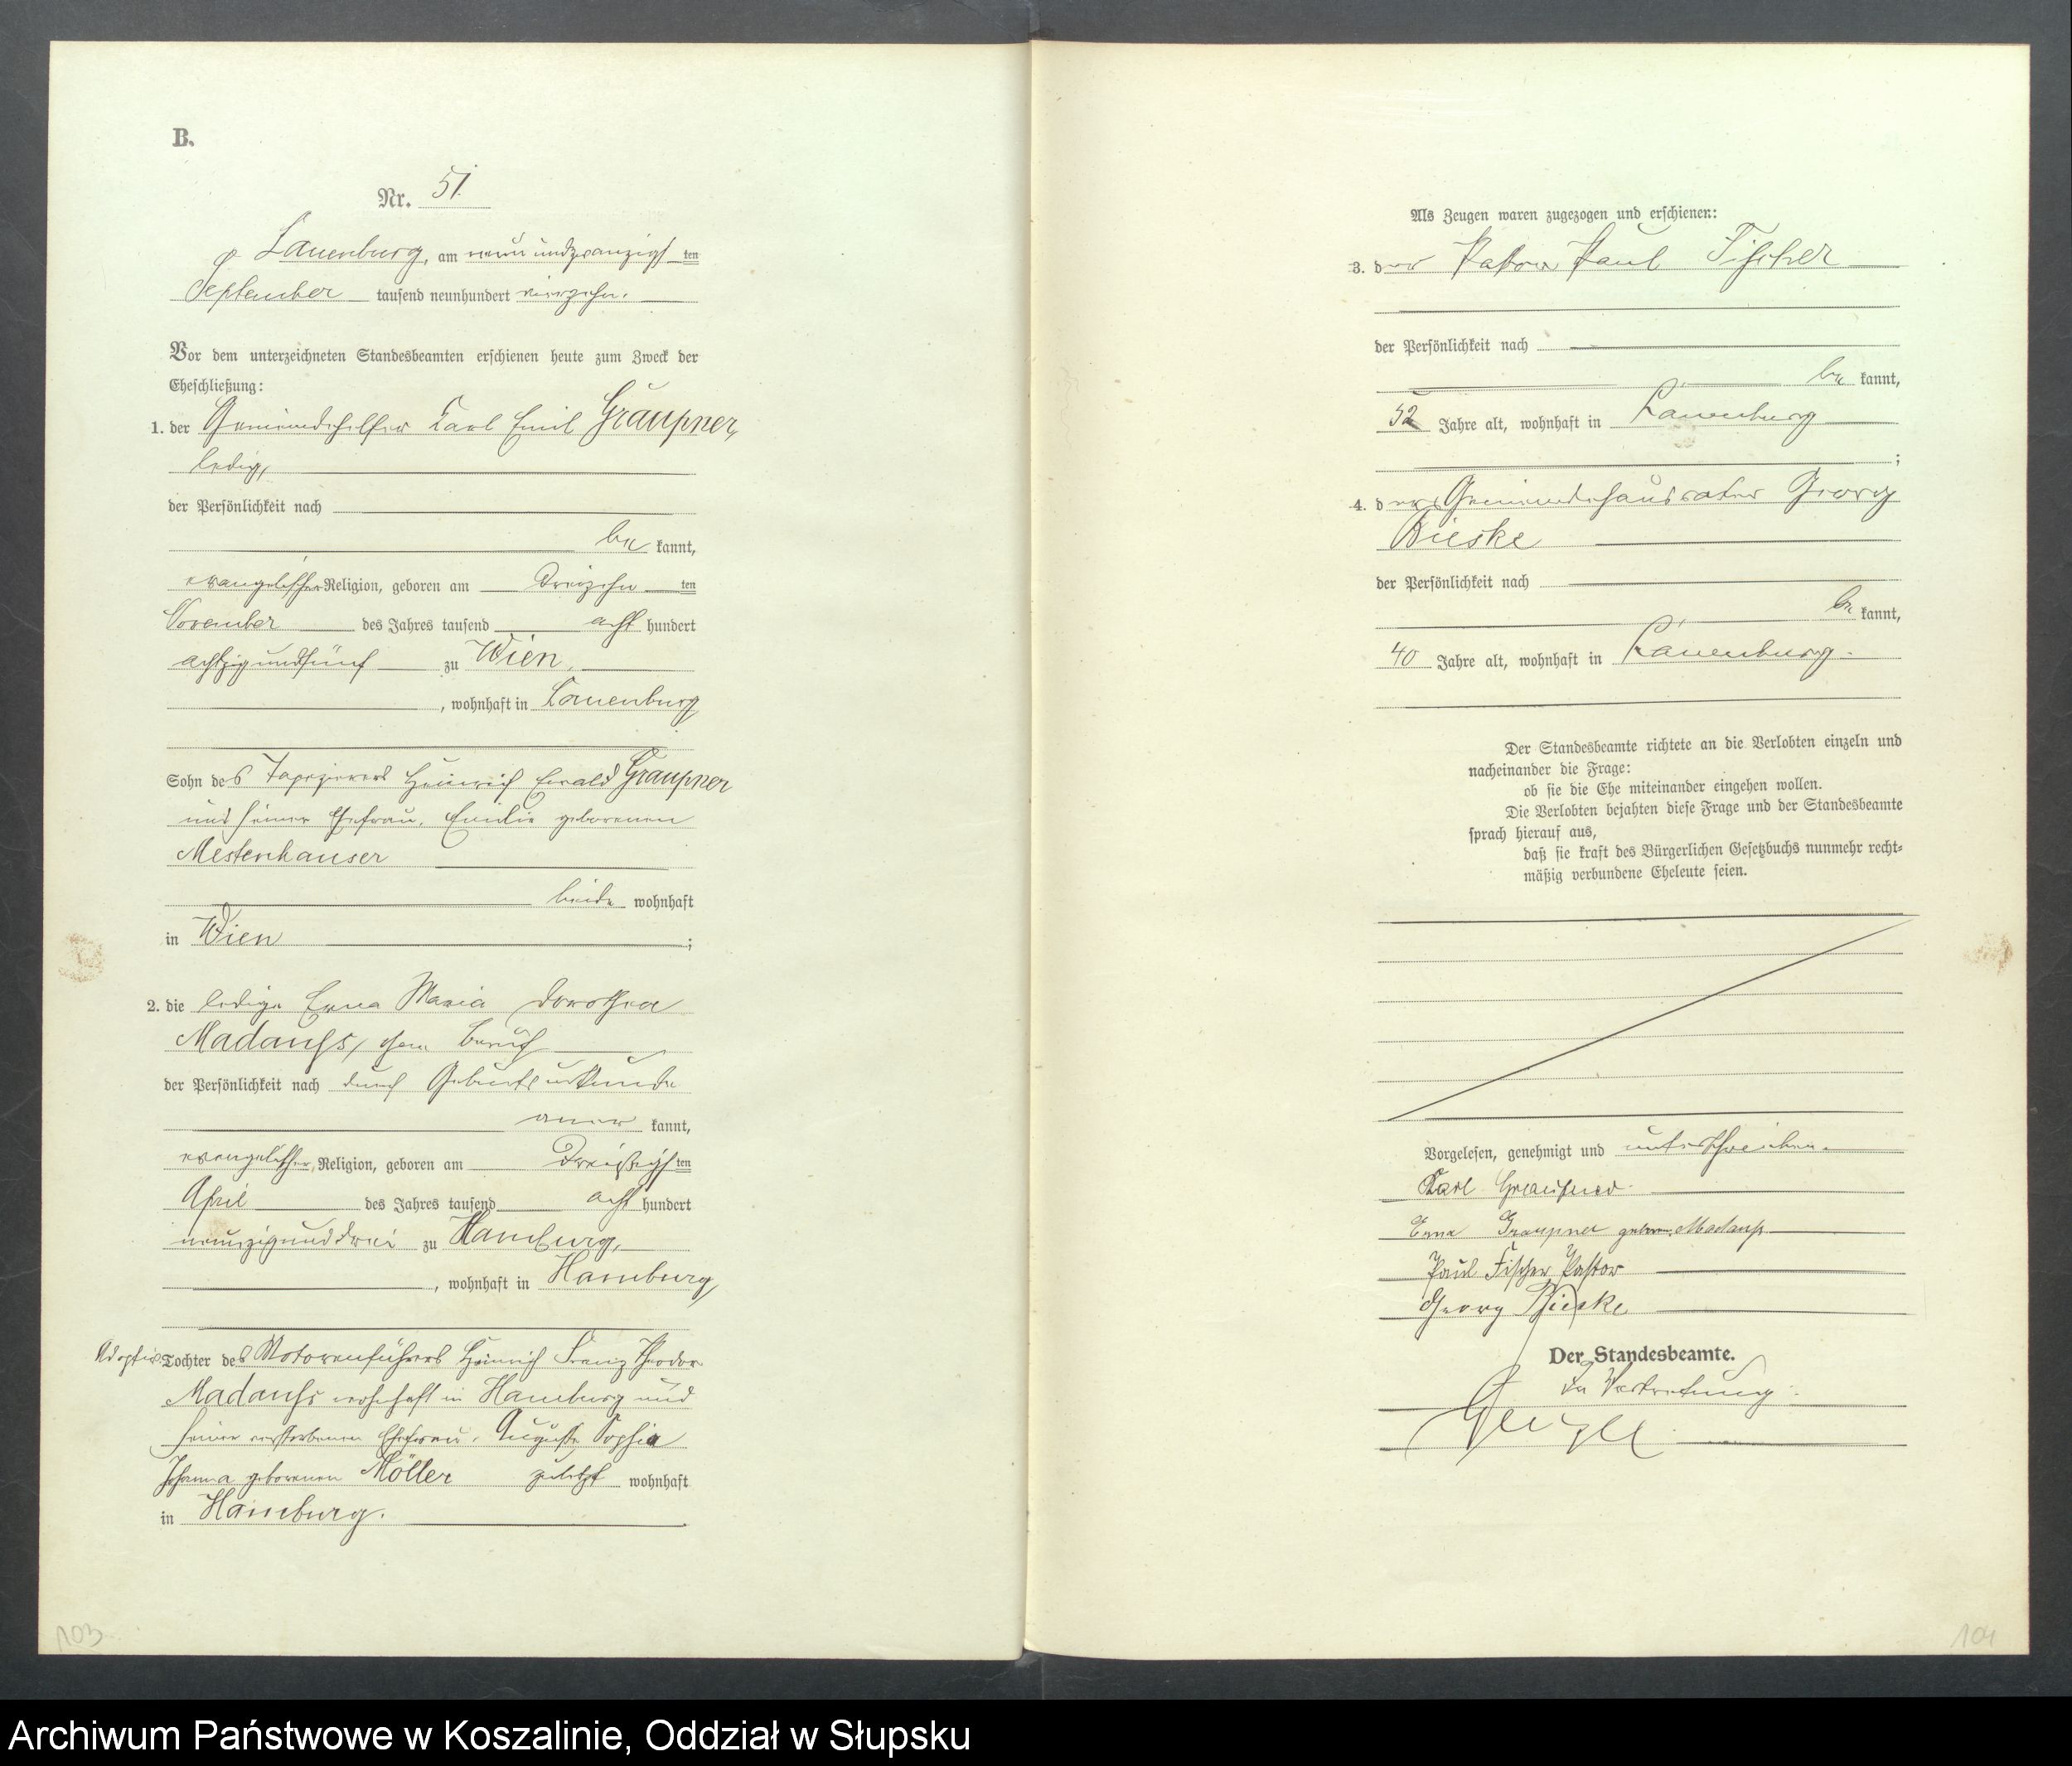 B.
Nr. 51.
Lauenburg, am neunundzwanzigsten
September tausend neunhundert vierzehn.
Vor dem unterzeichneten Standesbeamten erschienen heute zum Zweck der
Eheschließung:
1. der Gemeindehelfer Karl Emil Graupner,
ledig,
der Persönlichkeit nach
be kannt,
evangelischer Religion, geboren am dreizehn ten
November des Jahres tausend acht hundert
achtzigundfünf zu Wien,
, wohnhaft in Lauenburg
Sohn des Tapezierers Heinrich Ewald Graupner
und seiner Ehefrau, Emilie geborenen
Mestenhauser
beide wohnhaft
in Wien ;
2. die ledige Erna Maria Dorothea
Madauss, ohne Beruf
der Persönlichkeit nach durch Geburtsurkunde
aner kannt,
evangelischer Religion, geboren am dreißigsten
April des Jahres tausend acht hundert
neunzigunddrei zu Hamburg,
, wohnhaft in Hamburg,
Adoptiv Tochter des Motorenführers Heinrich Franz Theodor
Madauss wohnhaft in Hamburg und
seiner verstorbenen Ehefrau, Auguste Sophia
Johanna geborenen Möller zuletzt wohnhaft
in Hamburg.
103
Als Zeugen waren zugezogen und erschienen:
3. der Pastor Paul Fischer
der Persönlichkeit nach
be kannt,
52 Jahre alt, wohnhaft in Lauenburg
;
4. der Gemeindehausvater Georg
Bieske
der Persönlichkeit nach
be kannt,
40 Jahre alt, wohnhaft in Lauenburg.
Der Standesbeamte richtete an die Verlobten einzeln und
nacheinander die Frage:
ob sie die Ehe miteinander eingehen wollen.
Die Verlobten bejahten diese Frage und der Standesbeamte
sprach hierauf aus,
daß sie kraft des Bürgerlichen Gesetzbuchs nunmehr recht-
mäßig verbundene Eheleute seien.
Vorgelesen, genehmigt und unterschrieben.
Karl Graupner.
Erna Graupner geboren. Madauss
Paul Fischer, Pastor
Georg Bieske
Der Standesbeamte.
In Vertretung:
104
Archiwum Państwowe w Koszalinie, Oddział w Słupsku